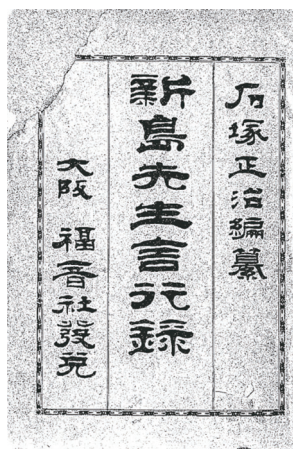 石塚正治編纂
新島先生言行録
大阪 福音社發兌